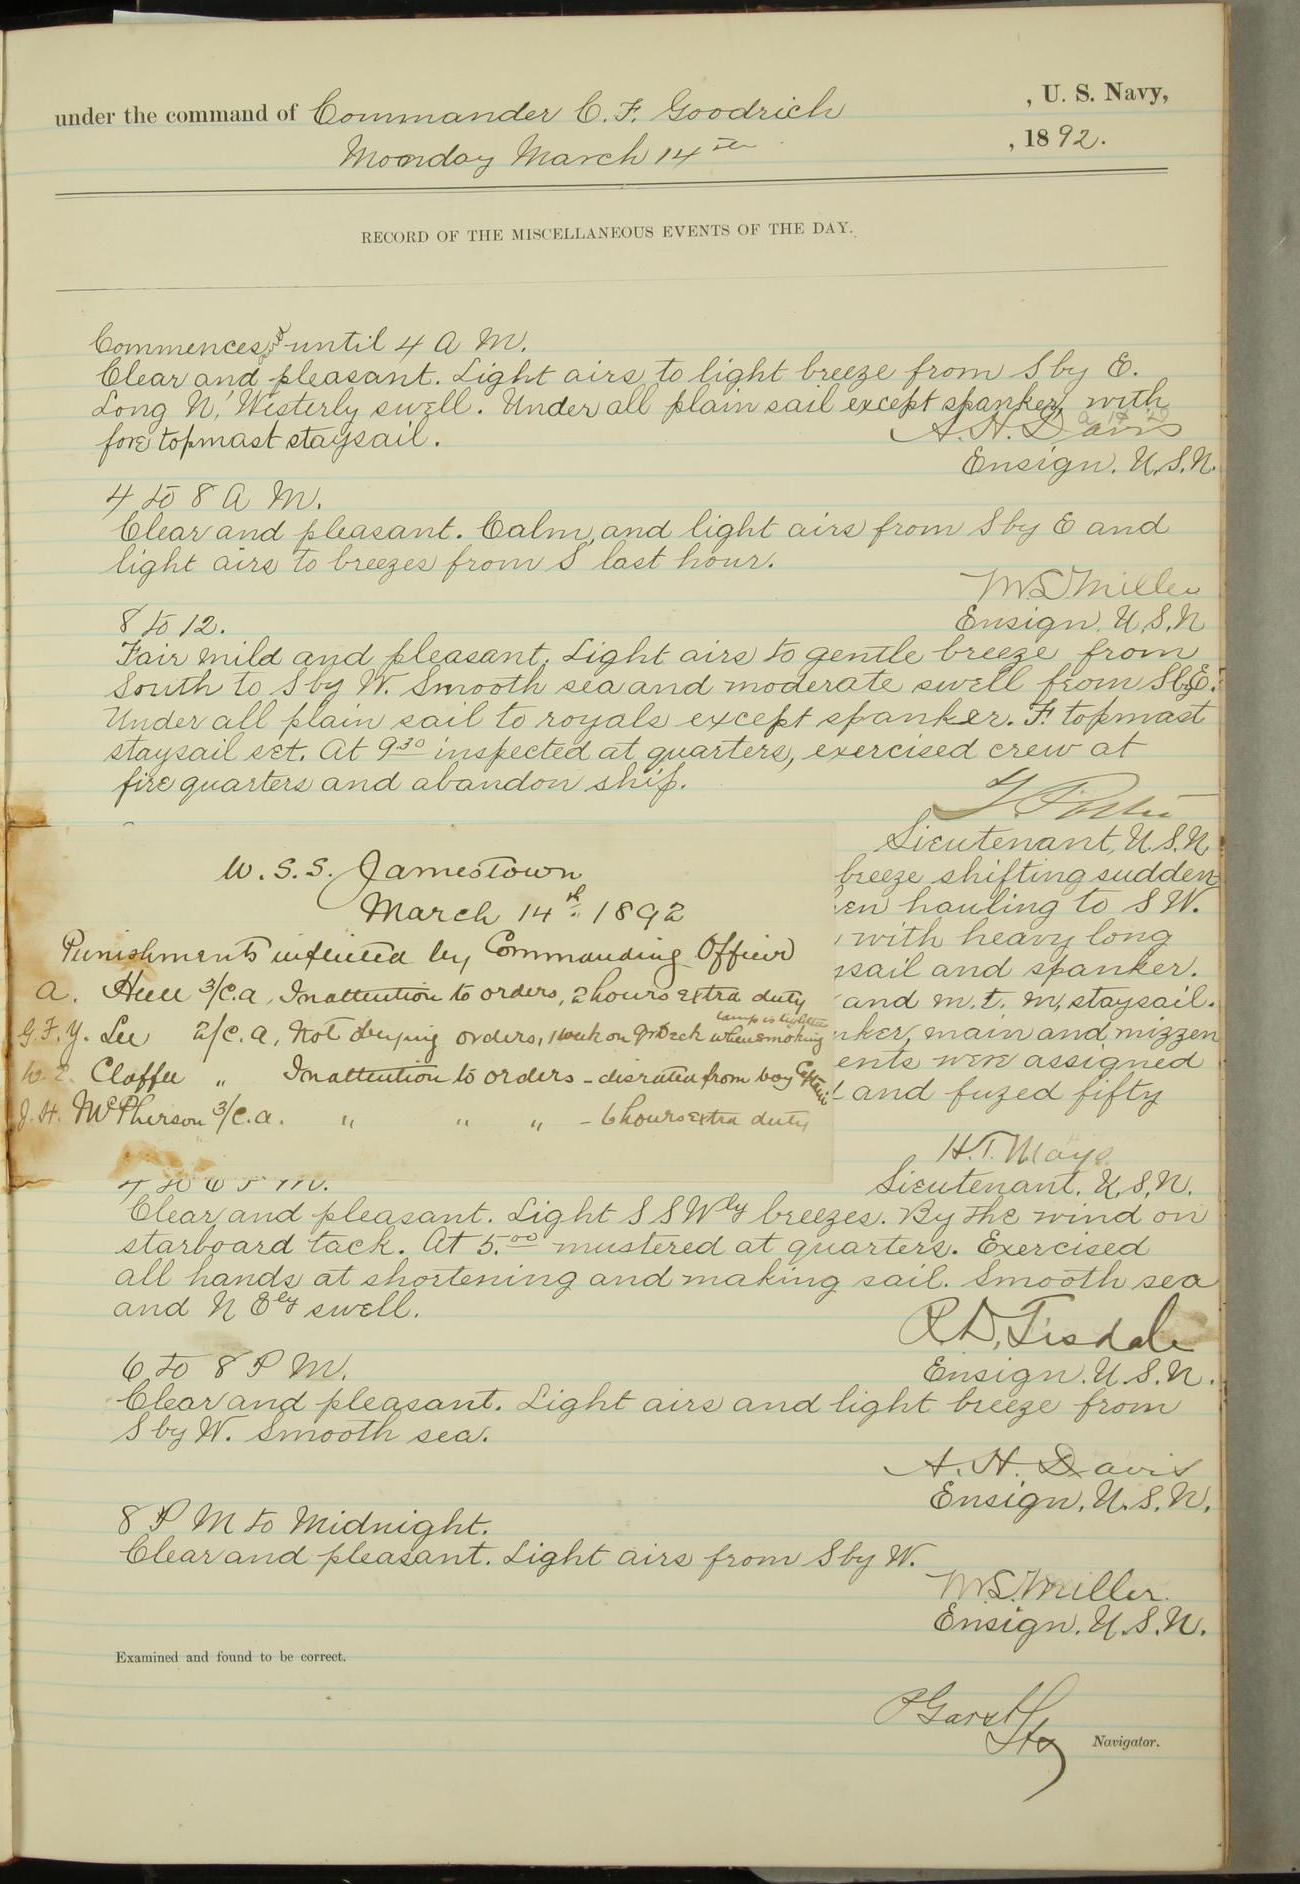 under the command of Commander C. F. Goodrich , U. S. Navy,
Monday March 14th , 1892.
RECORD OF THE MISCELLANEOUS EVENTS OF THE DAY.
Commences & until 4 A M.
Clear and pleasant. Light airs to light breeze from S by E.
Long N'Westerly swell. Under all plain sail except spanker, with
fore topmast staysail.
A. H. Davis
Ensign. U.S.N.
4 to 8 A M.
Clear and pleasant. Calm, and light airs from S by E and
light airs to breezes from S last hour.
M L Miller
Ensign. U.S.N
8 to 12.
Fair mild and pleasant. Light airs to gentle breeze from
South to S by W. Smooth sea and moderate swell from S by E.
Under all plain sail to royals except spanker. F. topmast
staysail set. At 9.30 inspected at quarters, exercised crew at
fire quarters and abandon ship.
Lieutenant, U.S.N
U.S.S. Jamestown
March 14th 1892
Punishments inflicted by Commanding Officer
A. Huee 3/c.a, Inattention to orders, 2 hours extra duty
G. F. Y. Lee 2/c.a, Not obeying orders, 1 week on qr Deck when smoking lamp is lighted
W. E. Claffee " Inattention to orders - disrated from boy Captain
J. H. McPherson 3/c.a. " " " - 6 hours extra duty
breeze shifting sudden
en hauling to S W.
with heavy long
sail and spanker.
and m. t. m, staysail.
nker, main and mizzen
ents were assigned
and fuzed fifty
H.T. Mayo
Lieutenant. U.S.N.
4 to 6 P M.
Clear and pleasant. Light S S Wly breezes. By the wind on
starboard tack. At 5.00 mustered at quarters. Exercised
all hands at shortening and making sail. Smooth sea
and N Ely swell.
R D, Tisdale
Ensign. U.S.N.
6 to 8 P M.
Clear and pleasant. Light airs and light breeze from
S by W. Smooth sea.
A. H. Davis
Ensign. U.S.N.
8 P M to Midnight.
Clear and pleasant. Light airs from S by W.
M L. Miller
Ensign. U.S.N.
Examined and found to be correct.
P Garst
Navigator.